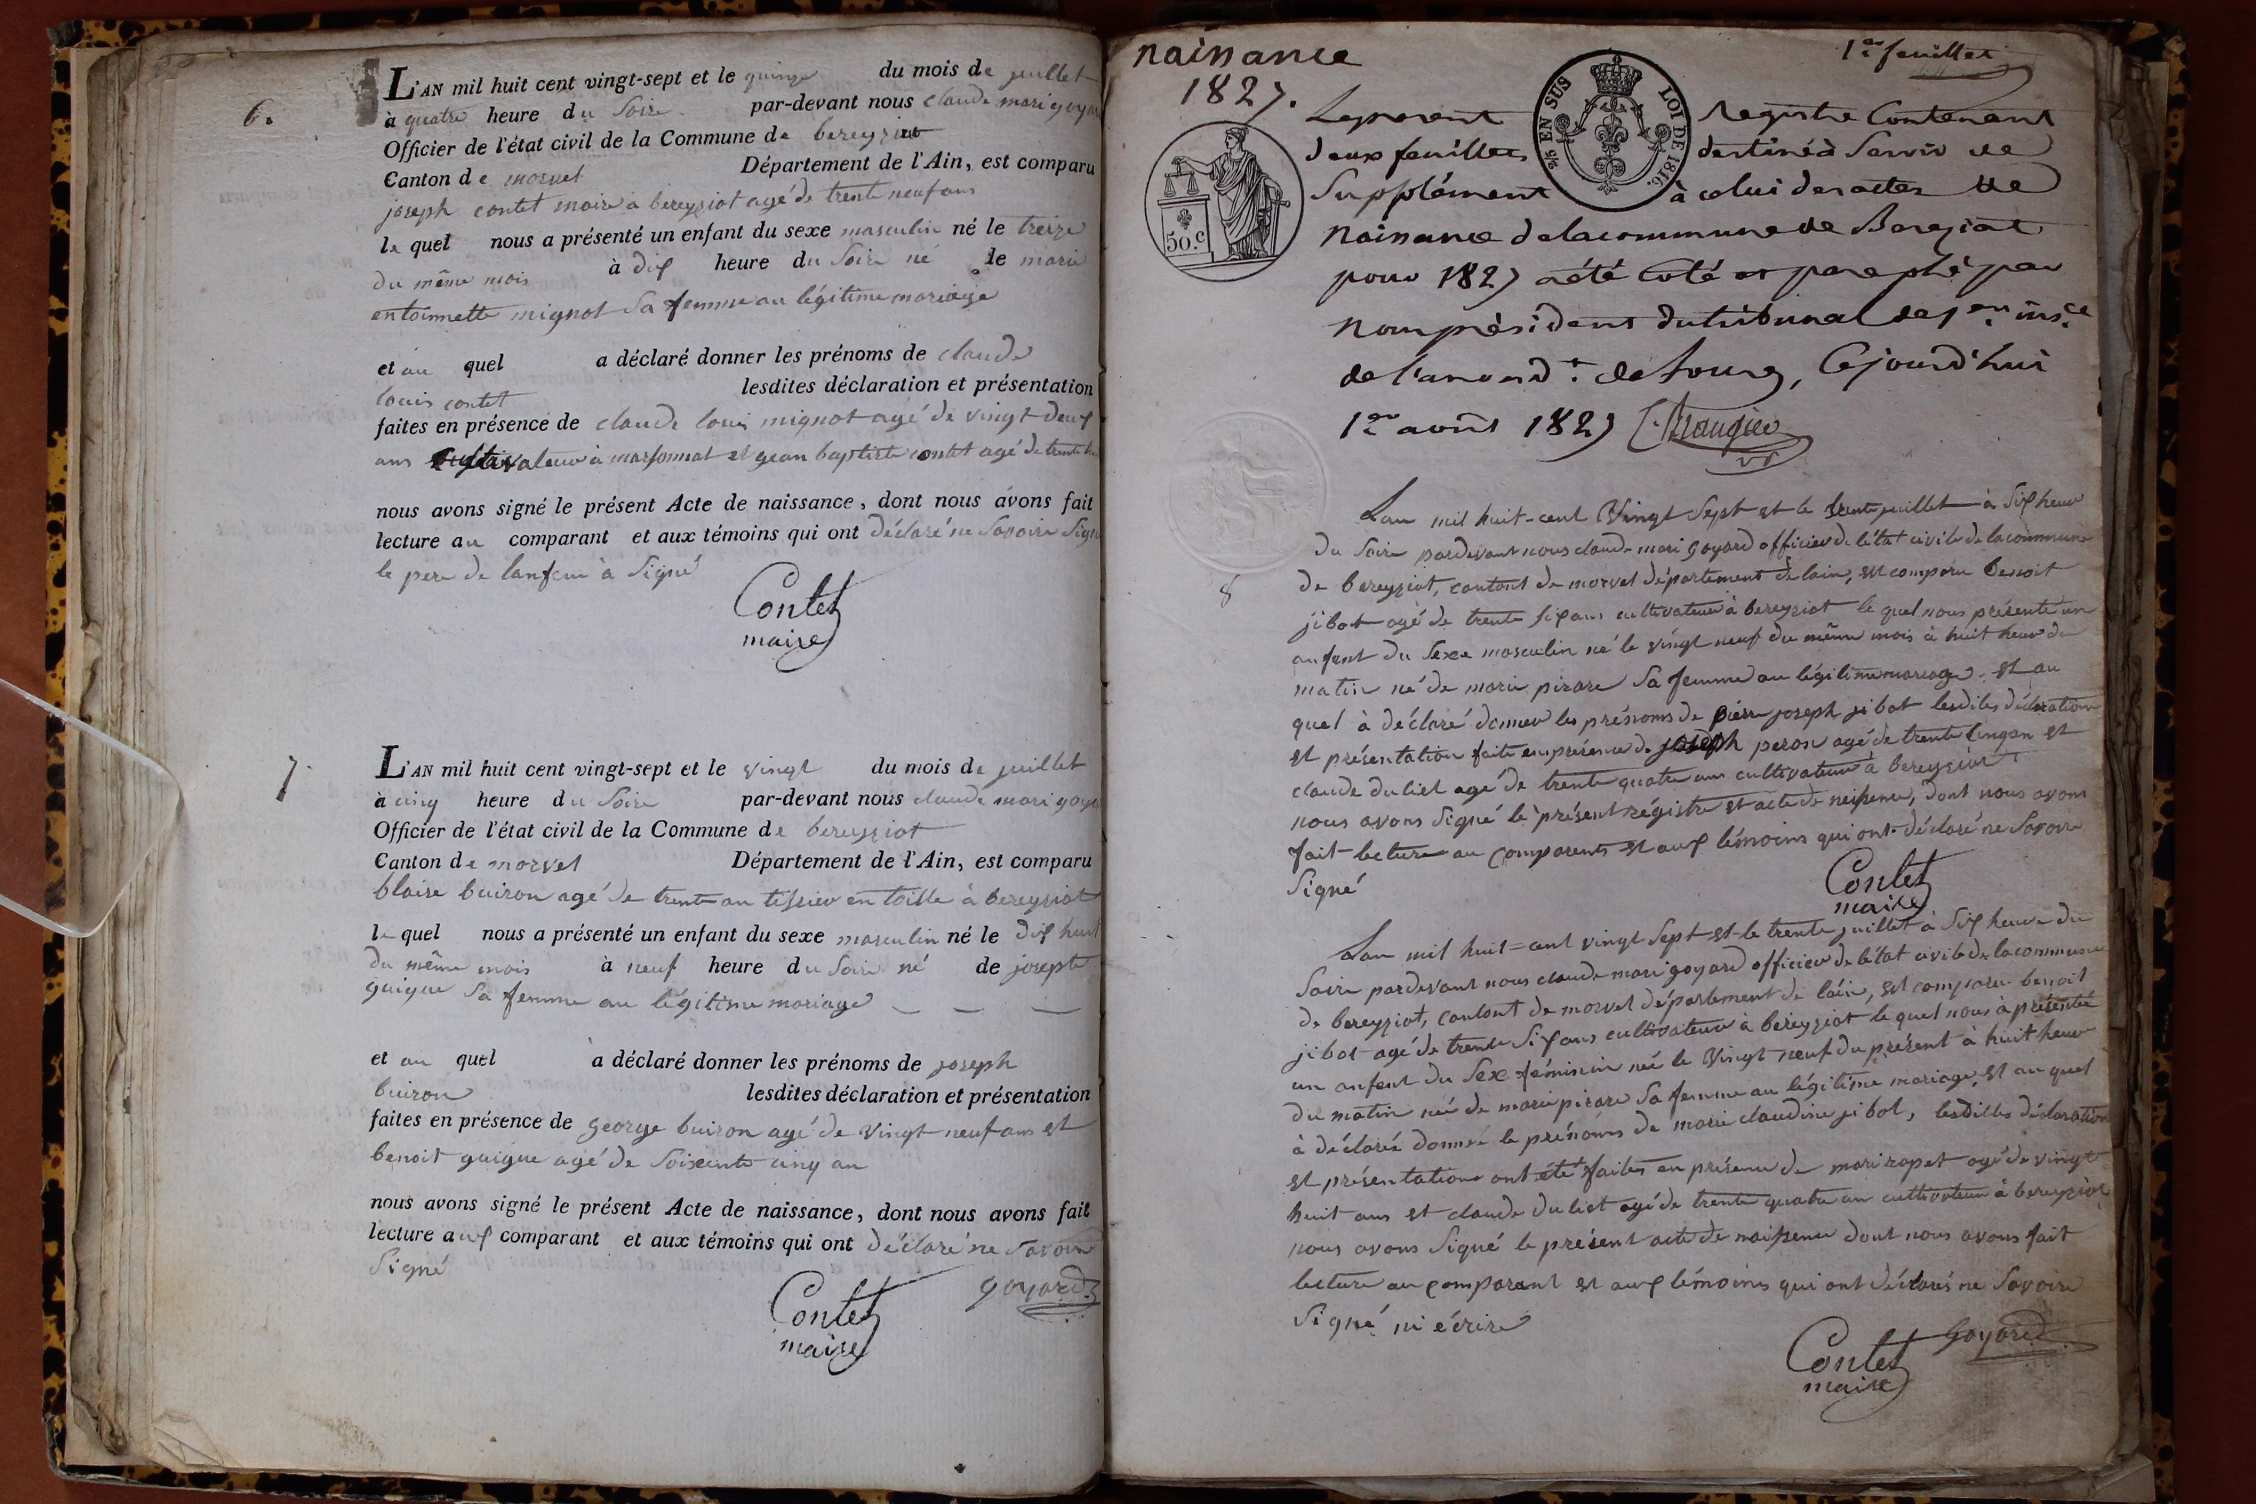 6.
L'AN mil huit cent vingt-sept et le quinze du mois de juillet
à quatre heure du Soire par-devant nous claude mari goyar
Officier de l'état civil de la Commune de bereyziat
Canton de morvel Département de l'Ain, est comparu
joseph contet maire à bereyziat agé de trente neuf ans
le quel nous a présenté un enfant du sexe masculin né le treize
du même mois à dix heure du Soire né de marie
entoinette mignot Sa femme au légitime mariage
et au quel a déclaré donner les prénoms de claude
louis contet lesdites déclaration et présentation
faites en présence de claude louis mignot agé de vingt deux
ans cultivateur à marsonnat et gean baptiste contet agé de trente
nous avons signé le présent Acte de naissance, dont nous avons fait
lecture au comparant et aux témoins qui ont déclaré ne Savoire Signé
le pere de lanfent à Signé
Contet
maire
7
L'AN mil huit cent vingt-sept et le vingt du mois de juillet
à cinq heure du Soire par-devant nous claude mari goya
Officier de l'état civil de la Commune de bereyziat
Canton de morvel Département de l'Ain, est comparu
blaise buiron agé de trente an tissier en toille à bereyziat
le quel nous a présenté un enfant du sexe masculin né le dix huit
du même mois à neuf heure du Soire né de josepte
guigue Sa femme au légitime mariage
et au quel à déclaré donner les prénoms de joseph
buiron lesdites déclaration et présentation
faites en présence de george buiron agé de vingt neuf ans et
benoit guigue agé de Soixente cinq an
nous avons signé le présent Acte de naissance, dont nous avons fait
lecture aux comparant et aux témoins qui ont déclaré ne Savoire
Signé
goyard
Contet
maire
naissance
1827.
1er feuillet
2/5 EN SUS LOI DE 1816.
50.c
Le présent registre Contenant
deux feuillets destiné à Servir de
Supplément à celui des actes de
Naissance de la commune de Bereziat
pour 1827 a été coté et paraphé par
Nous président du tribunal de 1ere ins.ce
de l'arrond.t de bourg, Cejourd'hui
1er août 1827
8
Lan mil huit-cent Vingt Sept et le trente juillet à Six heure
du Soire pardevant nous claude mari goyard officier de létat civile de la commune
de bereyziat, cantont de morvel département de lain, est comparu benoit
jibot agé de trente six ans cultivateur à bereyziat le quel nous présente un
anfent du Sexe masculin né le vingt neuf du même mois à huit heure du
matin né de marie pirare Sa femme au légitime mariage. et au
quel à déclaré donner les prénoms de pierre joseph jibot lesdites déclaration
et présentation faite en présence de joseph peron agé de trente cinq an et
claude duliet agé de trente quatre ans cultivateur à bereyziat
nous avons Signé le présent régistre et acte de neissence, dont nous avons
fait lecture au comparents et aux témoins qui ont déclaré ne Savoire
Signé
Contet
maire
Lan mil huit=cent vingt Sept et le trente juillet à Six heure du
Soire pardevant nous claude mari goyard officier de létat civile de la commune
de bereyziat, cantont de morvel département de láin, est comparu benoit
jibot agé de trente Six ans cultivateur à bereyziat le quel nous à présenté
un anfent du Sex féminin née le Vingt neuf du présent à huit heure
du matin née de marie pirare Sa femme au légitime mariage, et au quel
à déclaré donné le prénoms de marie claudine jibot, lesdittes déclaration
et présentation ont été faites en présence de mari ropet agé de vingt
huit ans et claude duliet agé de trente quatre an cultivateur à bereyziat
nous avons Signé le présent acte de naissence dont nous avons fait
lecture au comparant et aux témoins qui ont déclarés ne Savoire
Signé ni écrire
Goyard
Contet
maire